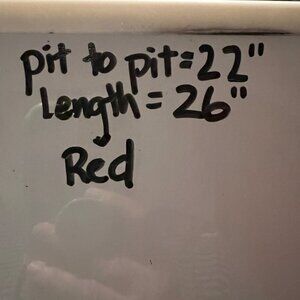 pit to pit=22"
Length = 26"
Red